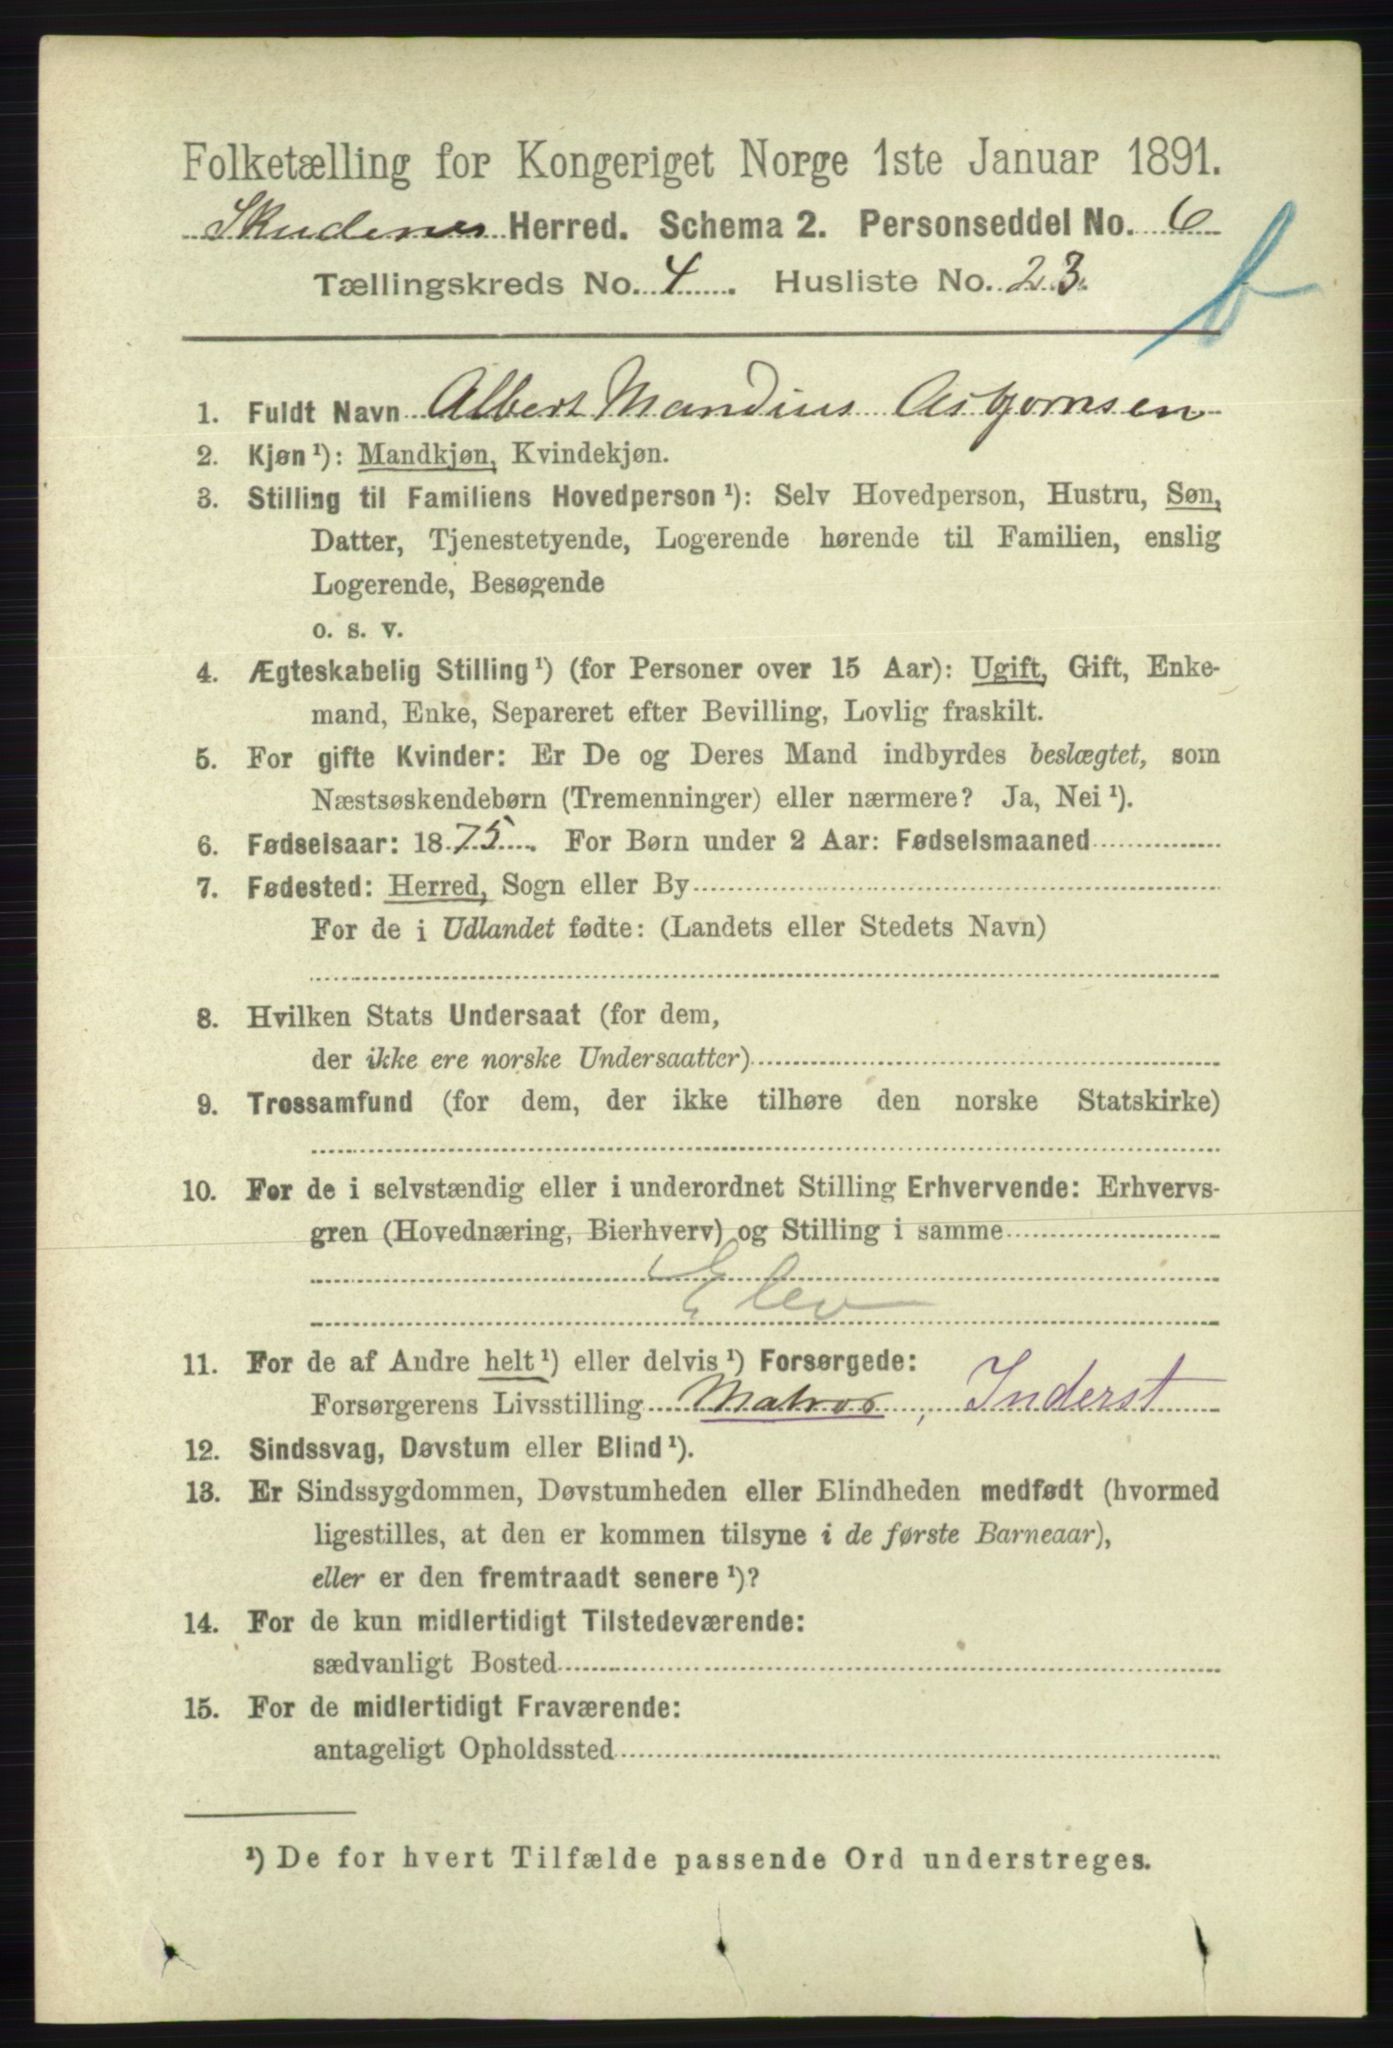 Folketælling for Kongeriget Norge 1ste Januar 1891.
Skudenes Herred. Schema 2. Personseddel No. 6
Tællingskreds No. 4. Husliste No. 23.
b
1. Fuldt Navn Albert Mandius Asbjørnsen
2. Kjøn ¹): Mandkjøn, Kvindekjøn.
3. Stilling til Familiens Hovedperson ¹): Selv Hovedperson, Hustru, Søn,
Datter, Tjenestetyende, Logerende hørende til Familien, enslig
Logerende, Besøgende
o. s. v.
4. Ægteskabelig Stilling ¹) (for Personer over 15 Aar): Ugift, Gift, Enke-
mand, Enke, Separeret efter Bevilling, Lovlig fraskilt.
5. For gifte Kvinder: Er De og Deres Mand indbyrdes beslægtet, som
Næstsøskendebørn (Tremenninger) eller nærmere? Ja, Nei ¹).
6. Fødselsaar: 1875. For Børn under 2 Aar: Fødselsmaaned
7. Fødested: Herred, Sogn eller By
For de i Udlandet fødte: (Landets eller Stedets Navn)
8. Hvilken Stats Undersaat (for dem,
der ikke ere norske Undersaatter)
9. Trossamfund (for dem, der ikke tilhøre den norske Statskirke)
10. For de i selvstændig eller i underordnet Stilling Erhvervende: Erhvervs-
gren (Hovednæring, Bierhverv) og Stilling i samme
Elev
11. For de af Andre helt ¹) eller delvis ¹) Forsørgede:
Forsørgerens Livsstilling Matros, Inderst
12. Sindssvag, Døvstum eller Blind ¹).
13. Er Sindssygdommen, Døvstumheden eller Blindheden medfødt (hvormed
ligestilles, at den er kommen tilsyne i de første Barneaar),
eller er den fremtraadt senere ¹)?
14. For de kun midlertidigt Tilstedeværende:
sædvanligt Bosted
15. For de midlertidigt Fraværende:
antageligt Opholdssted
¹) De for hvert Tilfælde passende Ord understreges.